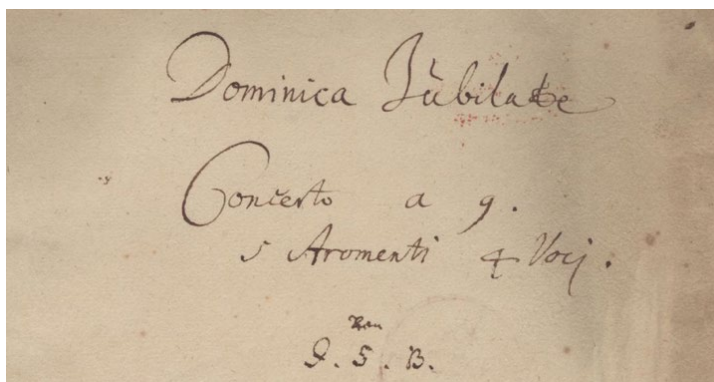 Dominica Jubilate
Concerto a 9.
5 Stromenti 4 Voci.
J. S. B.